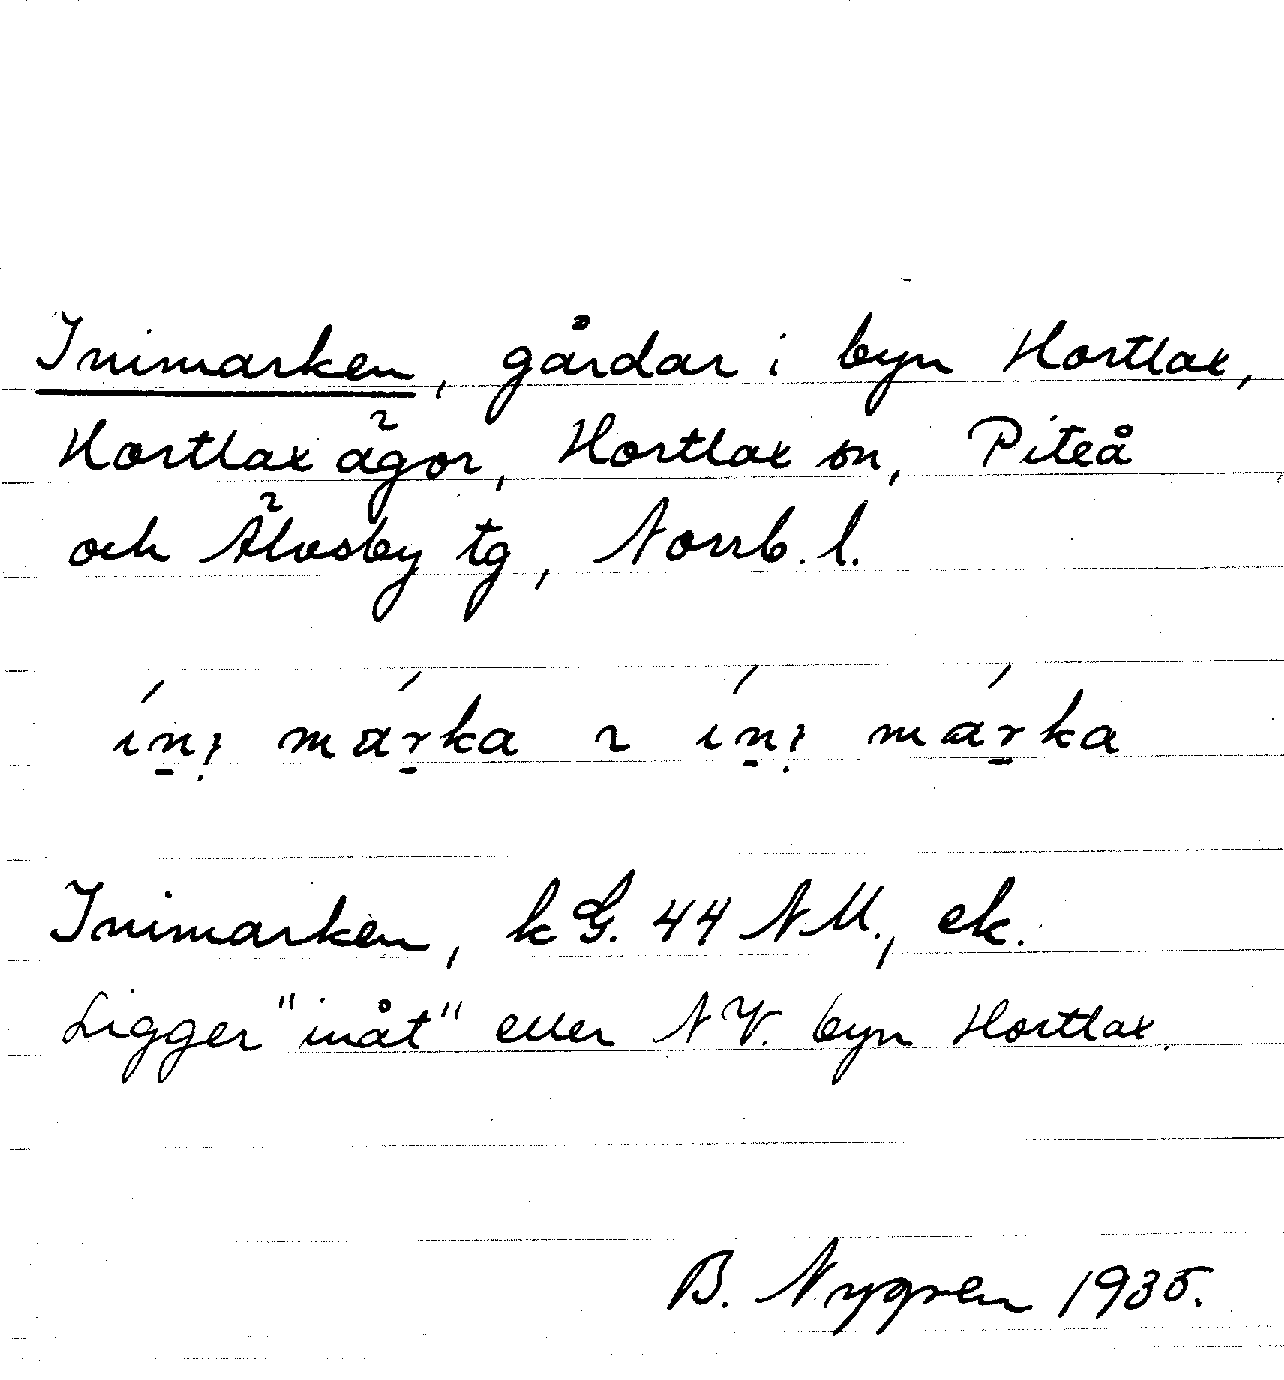 Inimarken, gårdar i byn Hortlax,
Hortlax ägor, Hortlax sn, Piteå
och Älvsby tg, Norrb. l.
ı́n̠ı̣ márka ɿ ı́n̠ı̣ márka
Inimarken, kG. 44 NM., ek.
Ligger "inåt" eller NV. byn Hortlax.
B. Nygren 1935.